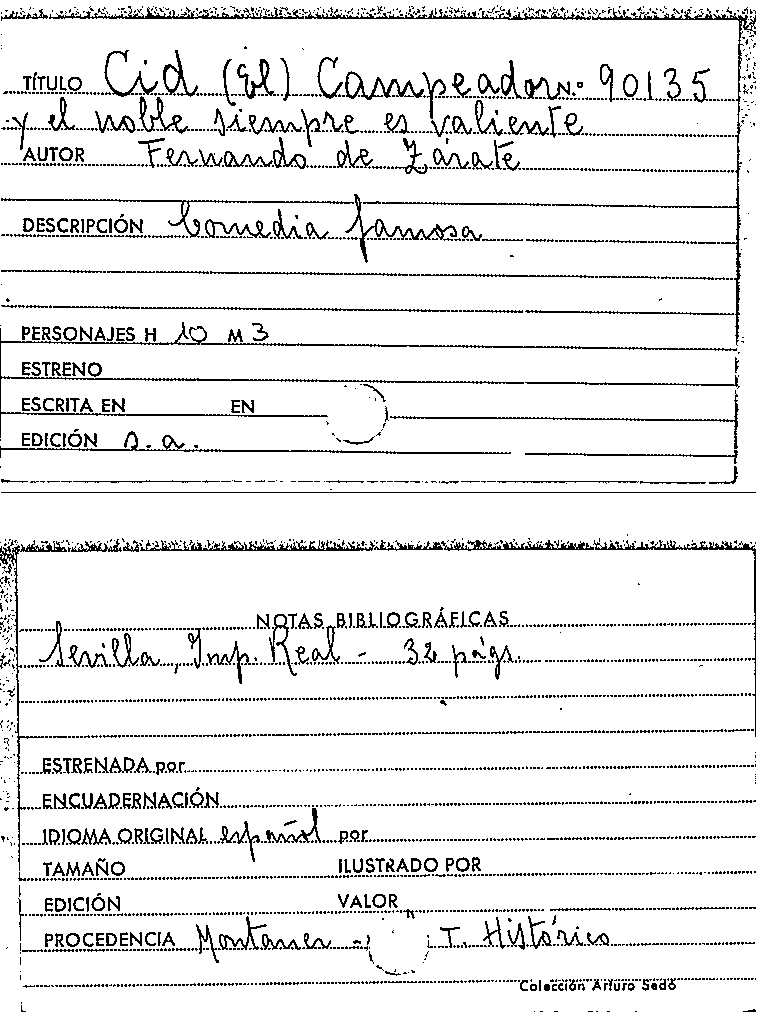 TÍTULO Cid (El) Campeador N.º 90135
y el noble siempre es valiente
AUTOR Fernando de Zárate
DESCRIPCIÓN Comedia famosa
PERSONAJES H 10 M 3
ESTRENO
ESCRITA EN EN
EDICIÓN s.a.
NOTAS BIBLIOGRÁFICAS
Sevilla, Imp. Real - 32 págs.
ESTRENADA por
ENCUADERNACIÓN
IDIOMA ORIGINAL español por
TAMAÑO ILUSTRADO POR
EDICIÓN VALOR
PROCEDENCIA Montaner - T. Histórico
Colección Arturo Sedó